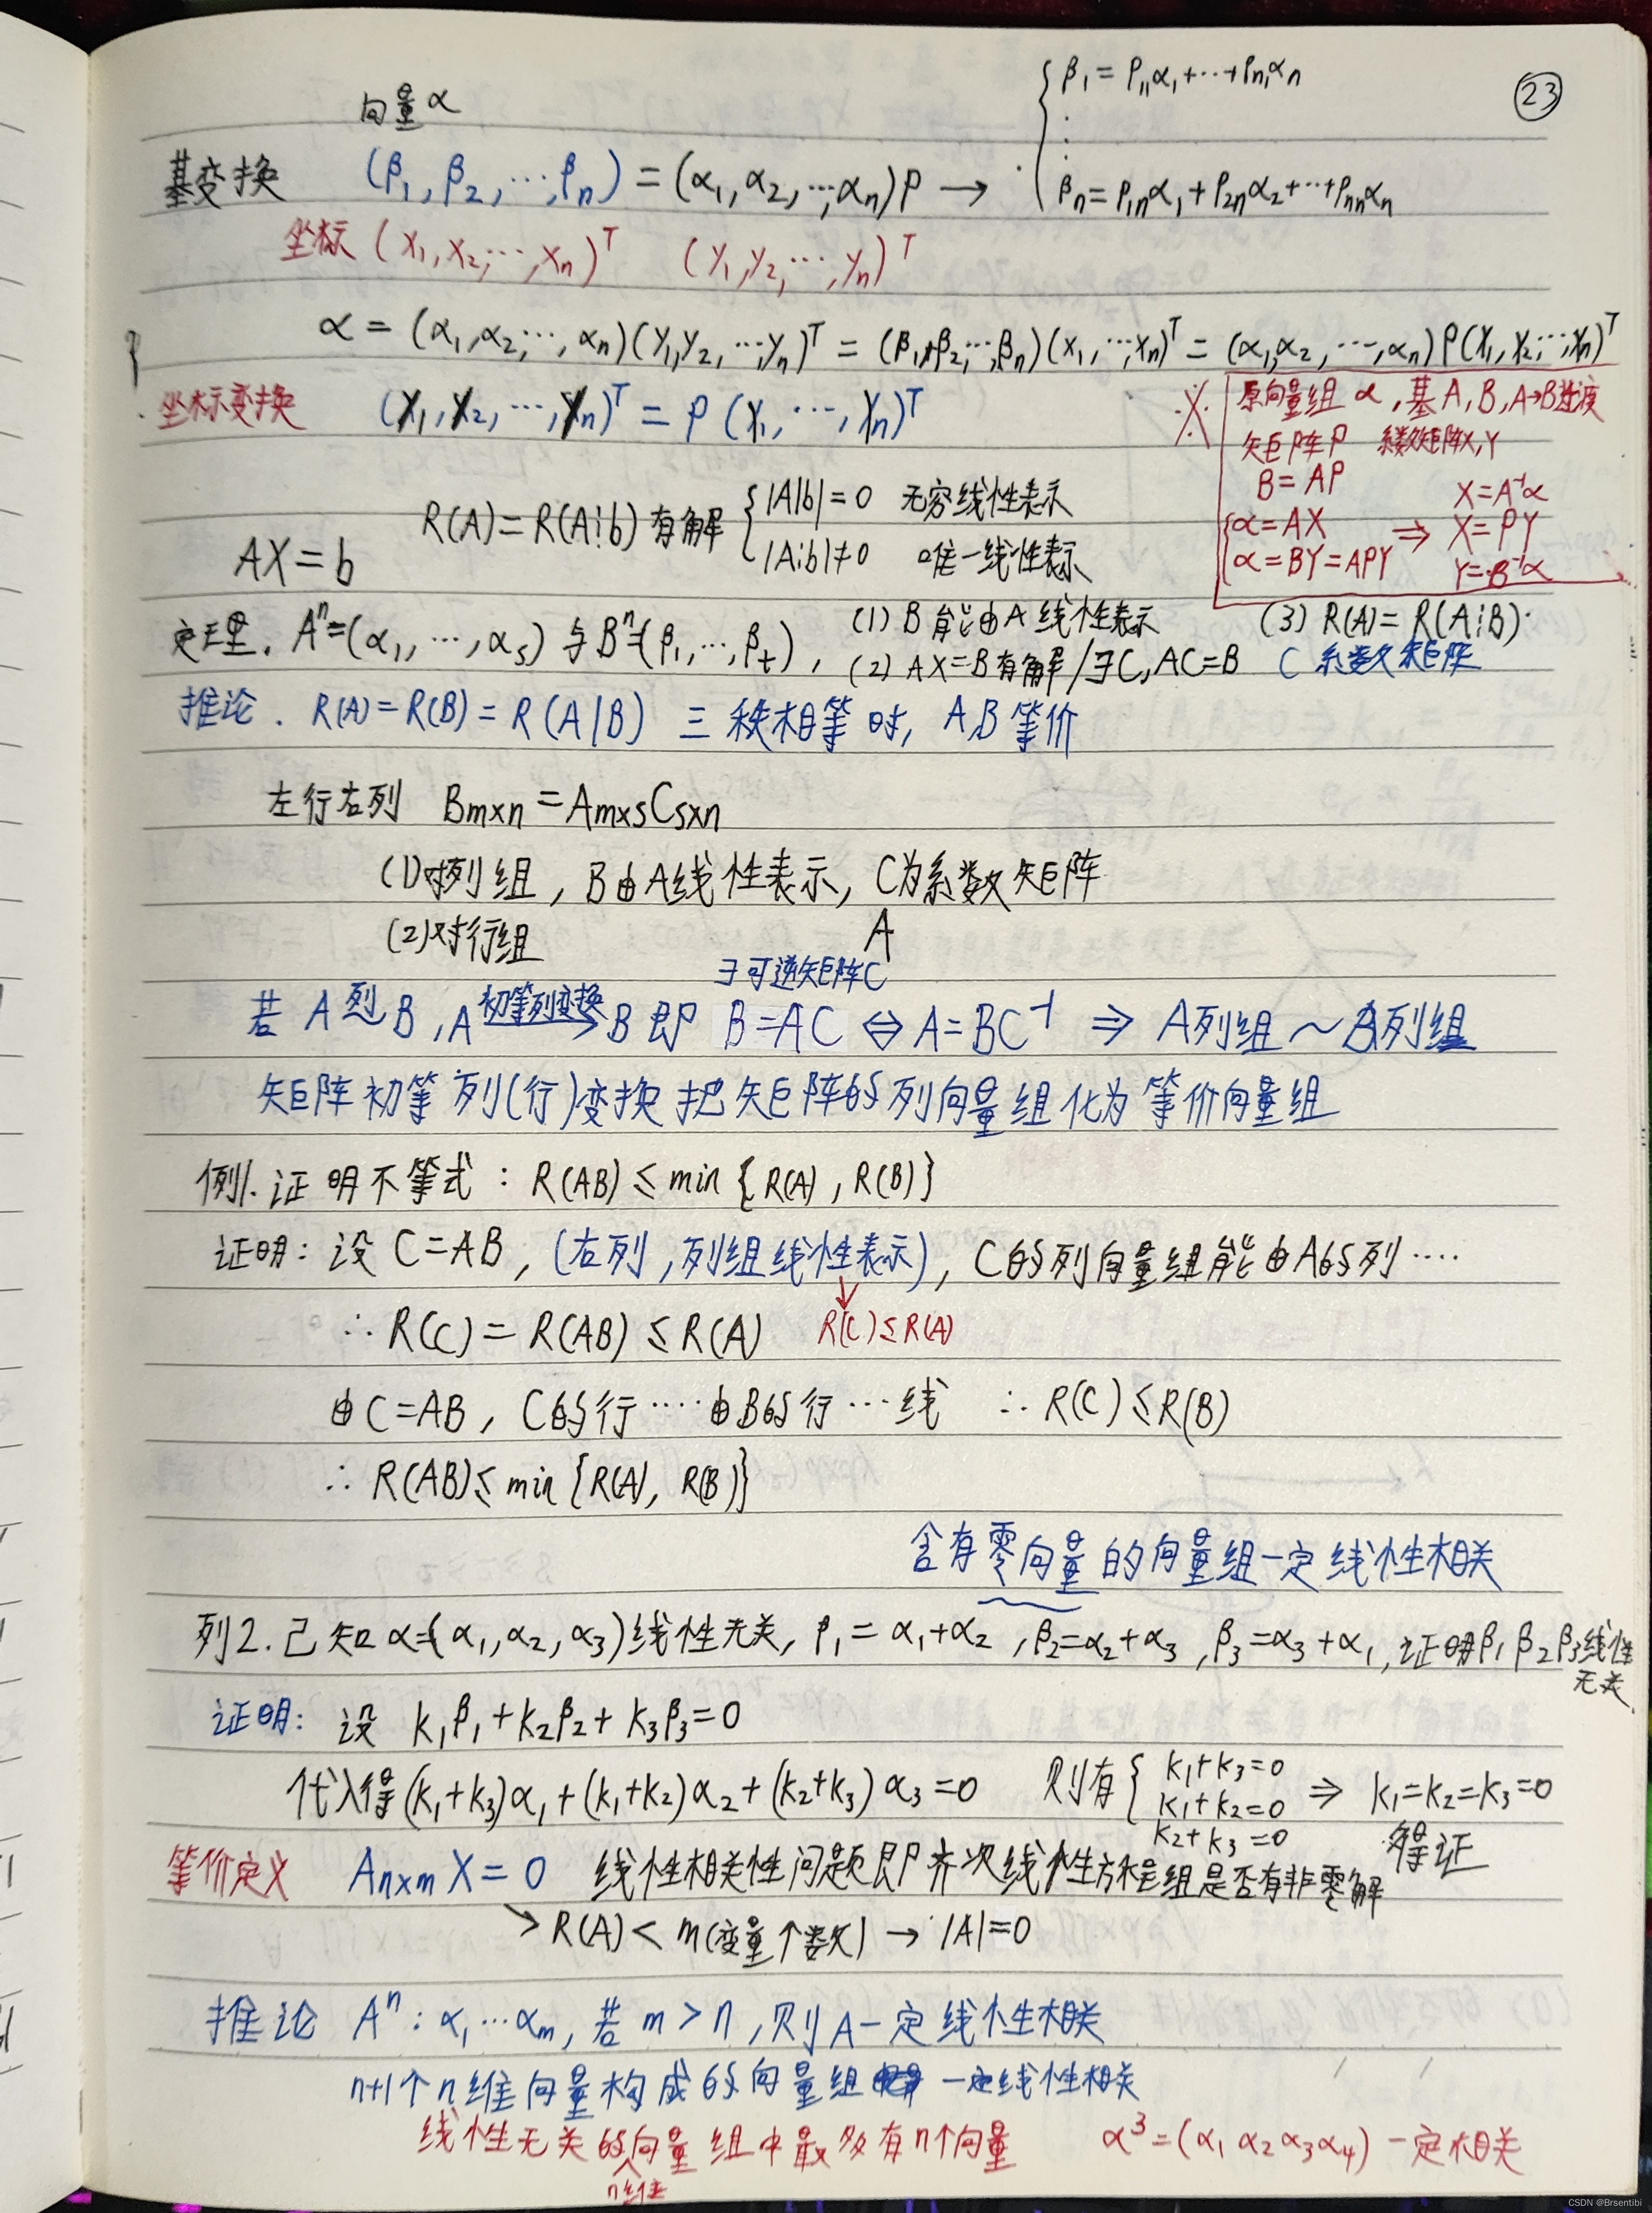 向量α
{ β₁ = p₁₁α₁+…+pn₁αn
⋮
βn = p₁nα₁+p₂nα₂+…+pnnαn
㉓
基变换 (β₁,β₂,…,βn) = (α₁,α₂,…,αn)P →
坐标 (x₁,x₂,…,xn)ᵀ (y₁,y₂,…,yn)ᵀ
α = (α₁,α₂,…,αn)(y₁,y₂,…,yn)ᵀ = (β₁,β₂,…,βn)(x₁,…,xn)ᵀ = (α₁,α₂,…,αn)P(x₁,x₂,…,xn)ᵀ
坐标变换 (y₁,y₂,…,yn)ᵀ = P(x₁,…,xn)ᵀ
※ 原向量组α,基A,B,A→B过渡
矩阵P 系数矩阵X,Y
B=AP
X=A⁻¹α
{ α=AX ⇒ X=PY
α=BY=APY Y=B⁻¹α
AX=b R(A)=R(A⋮b)有解 { |A|b|=0 无穷线性表示
|A⋮b|≠0 唯一线性表示
定理. Aⁿ=(α₁,…,αs)与Bⁿ=(β₁,…,βt), (1) B能由A线性表示 (3) R(A)=R(A⋮B).
(2) AX=B有解/∃C,AC=B C系数矩阵
推论. R(A)=R(B)=R(A|B) 三秩相等时, A,B等价
左行右列 Bm×n=Am×sCs×n
(1)对列组, B由A线性表示, C为系数矩阵
(2)对行组 A
∃可逆矩阵C
若A列B, A 初等列变换→ B 即 B=AC ⇔ A=BC⁻¹ ⇒ A列组~B列组
矩阵初等列(行)变换把矩阵的列向量组化为等价向量组
例1. 证明不等式: R(AB)≤min{R(A),R(B)}
证明: 设C=AB, (右列,列组线性表示), C的列向量组能由A的列….
∴ R(C)=R(AB)≤R(A) R(C)≤R(A)
由C=AB, C的行….由B的行…线 ∴ R(C)≤R(B)
∴ R(AB)≤min{R(A), R(B)}
含有零向量的向量组一定线性相关
列2. 已知α=(α₁,α₂,α₃)线性无关, β₁=α₁+α₂, β₂=α₂+α₃, β₃=α₃+α₁, 证明β₁β₂β₃线性
无关
证明: 设 k₁β₁+k₂β₂+k₃β₃=0
代入得(k₁+k₃)α₁+(k₁+k₂)α₂+(k₂+k₃)α₃=0 则有{ k₁+k₃=0
k₁+k₂=0 ⇒ k₁=k₂=k₃=0
k₂+k₃=0 得证
等价定义 An×mX=0 线性相关性问题即齐次线性方程组是否有非零解
→ R(A)<m(变量个数) → |A|=0
推论 Aⁿ: α₁…αm, 若m>n, 则A一定线性相关
n+1个n维向量构成的向量组一定线性相关
线性无关的向量组中最多有n个向量 α³=(α₁α₂α₃α₄)一定相关
n维
CSDN @Brsentibi